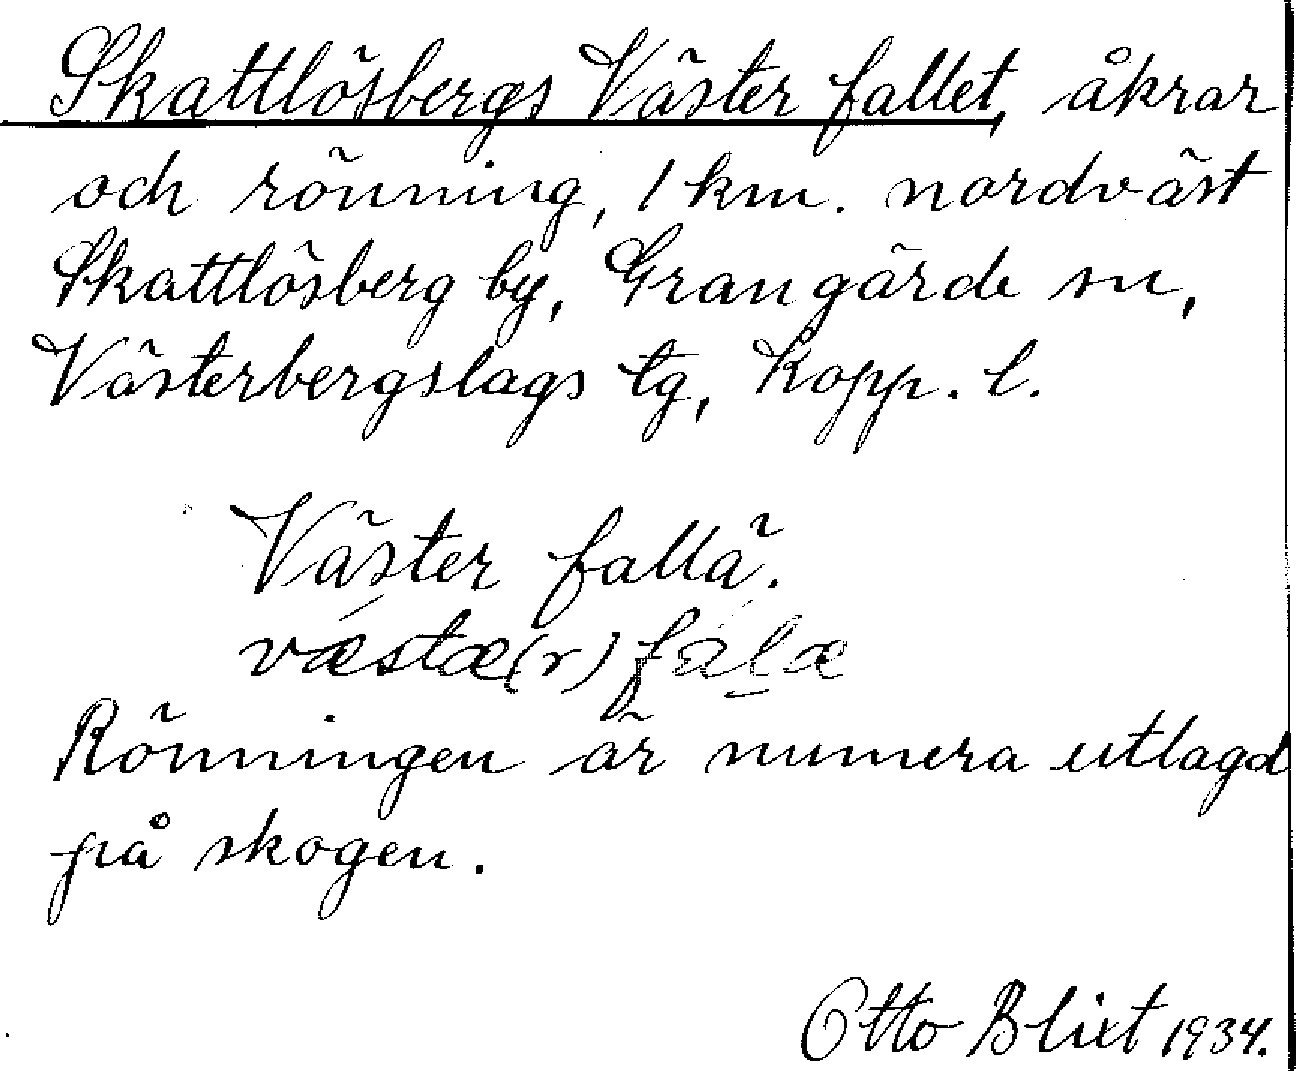 Skattlösbergs Väster fallet, åkrar
och rönning, 1 km. nordväst
Skattlösberg by, Grangärde sn,
Västerbergslags tg, Kopp. l.
Väster fallä.
væstæ(r)falæ
Rönningen är numera utlagd
på skogen.
Otto Blixt 1934.